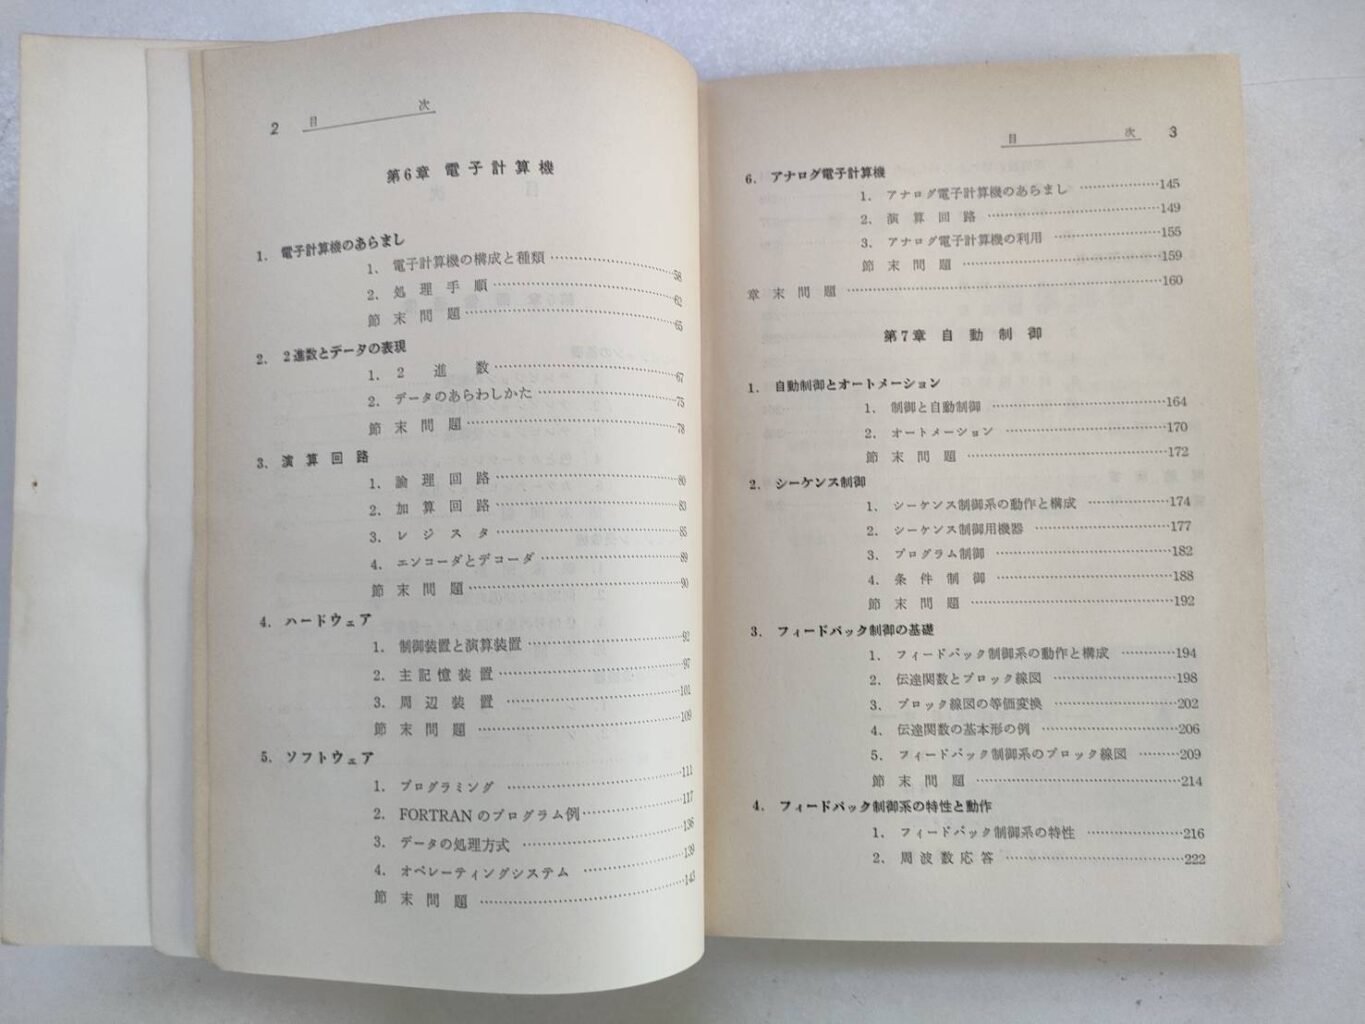 2 目 次
第6章 電子計算機
1. 電子計算機のあらまし
1. 電子計算機の構成と種類 ……………… 58
2. 処理手順 ……………… 62
節末問題 ……………… 65
2. 2進数とデータの表現
1. 2進数 ……………… 67
2. データのあらわしかた ……………… 75
節末問題 ……………… 78
3. 演算回路
1. 論理回路 ……………… 80
2. 加算回路 ……………… 83
3. レジスタ ……………… 85
4. エンコーダとデコーダ ……………… 89
節末問題 ……………… 90
4. ハードウェア
1. 制御装置と演算装置 ……………… 92
2. 主記憶装置 ……………… 97
3. 周辺装置 ……………… 101
節末問題 ……………… 109
5. ソフトウェア
1. プログラミング ……………… 111
2. FORTRANのプログラム例 ……………… 117
3. データの処理方式 ……………… 136
4. オペレーティングシステム ……………… 139
節末問題 ……………… 143
目 次 3
6. アナログ電子計算機
1. アナログ電子計算機のあらまし ……………… 145
2. 演算回路 ……………… 149
3. アナログ電子計算機の利用 ……………… 155
節末問題 ……………… 159
章末問題 ……………… 160
第7章 自動制御
1. 自動制御とオートメーション
1. 制御と自動制御 ……………… 164
2. オートメーション ……………… 170
節末問題 ……………… 172
2. シーケンス制御
1. シーケンス制御系の動作と構成 ……………… 174
2. シーケンス制御用機器 ……………… 177
3. プログラム制御 ……………… 182
4. 条件制御 ……………… 188
節末問題 ……………… 192
3. フィードバック制御の基礎
1. フィードバック制御系の動作と構成 ……………… 194
2. 伝達関数とブロック線図 ……………… 198
3. ブロック線図の等価変換 ……………… 202
4. 伝達関数の基本形の例 ……………… 206
5. フィードバック制御系のブロック線図 ……………… 209
節末問題 ……………… 214
4. フィードバック制御系の特性と動作
1. フィードバック制御系の特性 ……………… 216
2. 周波数応答 ……………… 222